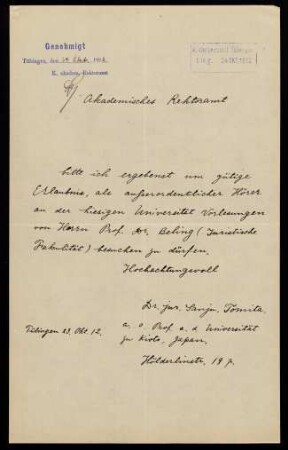 Genehmigt
Tübingen, den 24 Okt. 1912
K. akadem. Rektoramt
K. Universität Tübingen
Eing. 24 OKT. 1912
Akademisches Rektoramt
bitte ich ergebenst um gütige
Erlaubnis, als außerordentlicher Hörer
an der hiesigen Universität Vorlesungen
von Herrn Prof. Dr. Beling (Juristische
Fakultät) besuchen zu dürfen.
Hochachtungsvoll
Dr. jur. Sanju. Tomita
a. o. Prof. a. d. Universität
zu Kioto, Japan.
Tübingen 23. Okt. 12.
Hölderlinstr. 19